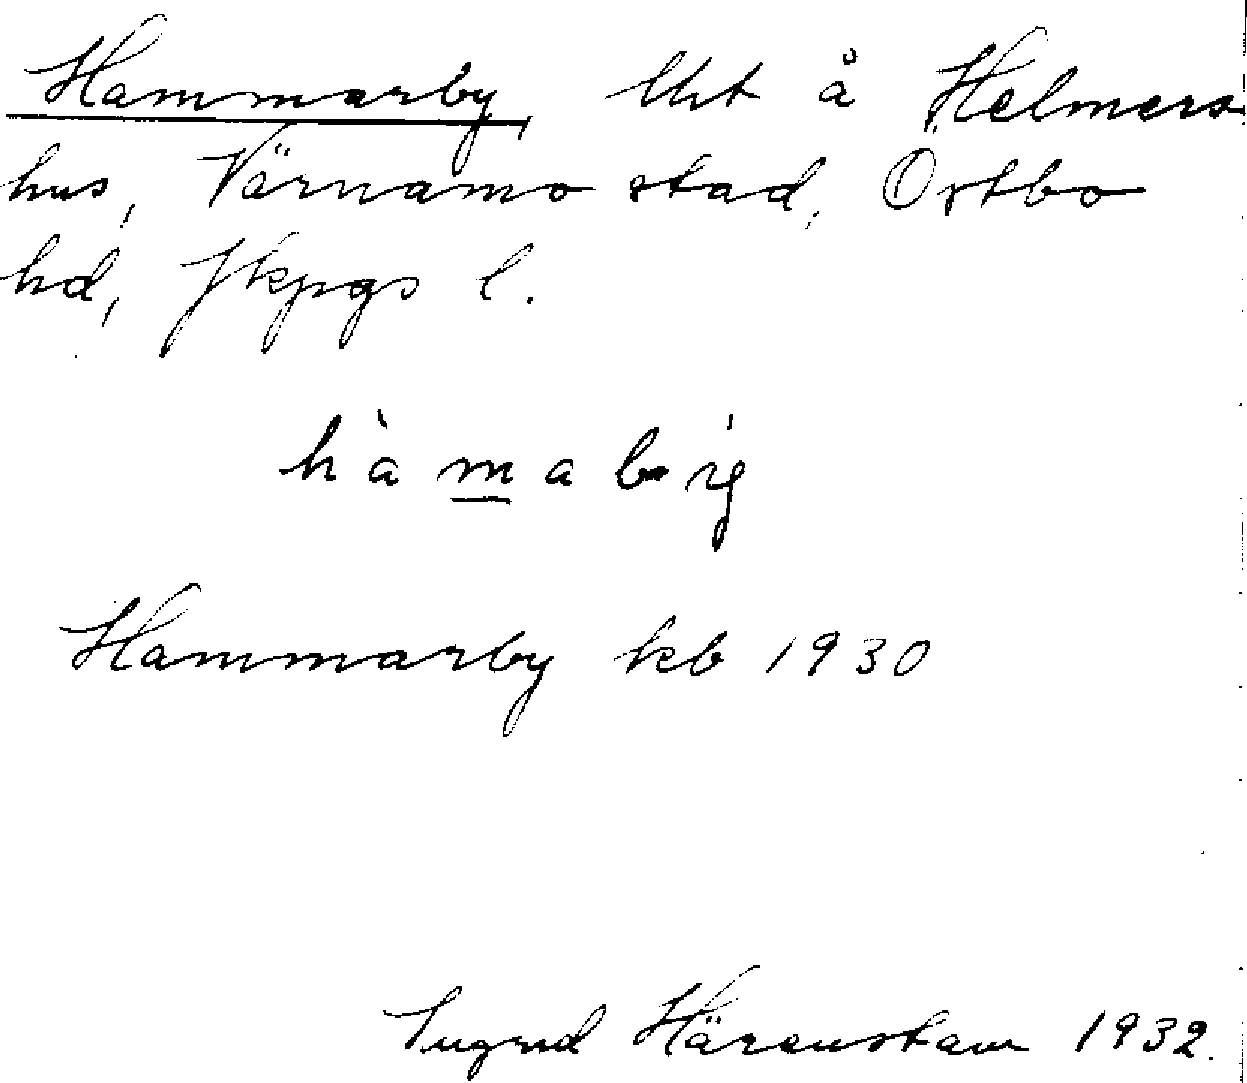 Hammarby lht å Helmers
hus, Värnamo stad, Östbo
hd, Jkpgs l.
hàmabỳ
Hammarby kb 1930
Ingrid Härenstam 1932.